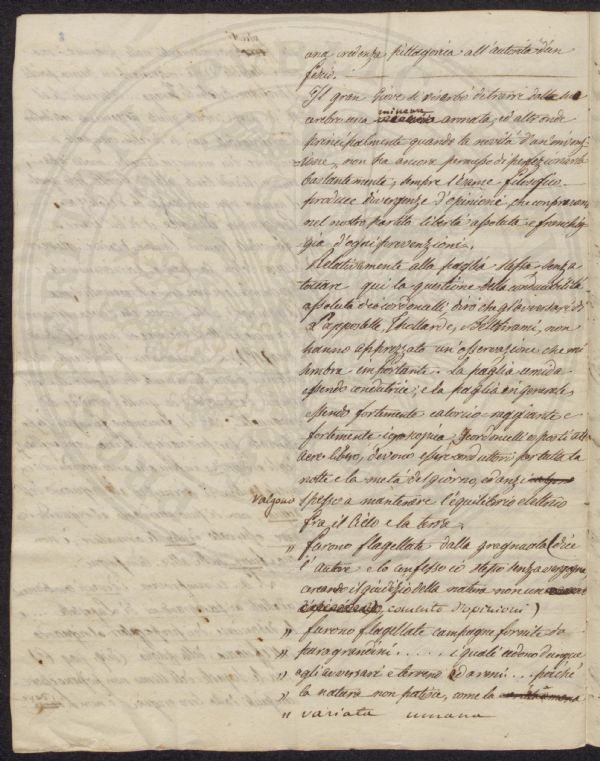 una credenza pittagorica all'autorità d'un
fisico.
Il gran Giove si riserbò di trarre dalla sua
cerebro una minerva armata, ed alle onde
principalmente quando la novità d'un'
non ha ancora permesso di perfezionarla
bastantemente, sempre l'esame filosofico
produce divergenze d'opinione che
nel nostro partito libertà assoluta, e franchig-
gia d'ogni prevenzioni.
Relativamente alla paglia stessa senza
toccare qui la questione della conducibilità
assoluta de' cordonelli, dirò che gl'avversarj di
Lappostolle, Thollard, e Beltrami, non
hanno apprezzato un'osservazione che mi
sembra importante. La paglia umida
essendo conduttrice; e la paglia in generale
essendo fortemente calorico-raggiante e
fortemente igroscopica i cordoncelli esposti all'
aere libero, devono essere conduttori per tutta la
notte e la metà del giorno, ed anzi
valgono spesso a mantenere l'equilibrio elettrico
fra il Cielo e la terra.
„ furono flagellate dalla gragnuola (dice
l'autore e lo confesso io stesso senza
il giudizio della natura non un
comento d'opinioni)
„ furono flagellate campagne fornite di
„ paragrandini..... i quali cadono dunque
„ agli avversarj e terreno ed armi... poichè
„ la natura non patteja, come la
„ variata umana